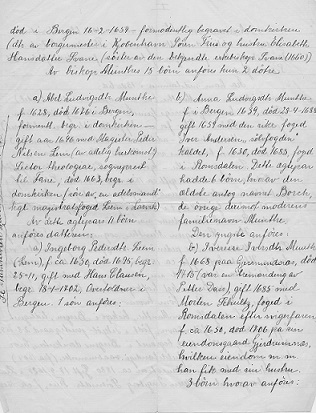 død i Bergen 16-2-1659 - formodentlig begravet i domkirken
(dtr. av borgemester i København Søren Friis og hustru Elisabeth
Hansdatter Svane (søster av den bekjendte erkebiskop Svane (1660))
Av biskop Munthes 13 børn anføres kun 2 døtre.
a) Abel Ludvigsdtr Munthe
f. 1628, død 1676 i Bergen,
formentl. begr. i domkirken -
gift aar 1646 med Magister Peder
Nielsen Lem (av adelig herkomst)
Lector Theologiae, sogneprest
død 1663, begr. i
domkirken
Av dette egtepar 11 børn
anføres datteren:
a) Ingeborg Pedersdtr Lem
(Lem), f. ca 1650, død 1695, begr.
25-11, gift med Hans Clausen,
begr. 18-1-1702, Overtoldner i
Bergen. 1 søn anføres:
b) Anna Ludvigsdtr Munthe
f. i Bergen 1639, død 28-9-1688
gift 1659 med den rike foged
Iver Andersen, "sølvfogden"
kaldet, f. 1630, død 1685, foged
i Romsdalen. Dette egtepar
hadde 6 børn, hvorav den
ældste antog navnet Borch,
de øvrige derimot moderens
familienavn Munthe.
Den yngste anføres:
b) Iversdtr Munthe
f. 1668 paa Gjermundnes, død
1715 (var en
Petter Dass), gift 1685 med
Morten Schultz, foged i
Romsdalen efter svigerfaren
f. ca 1650, død 1706 paa sin
eiendomsgaard Gjermundnes,
hvilken eiendom m.m.
han fik med sin hustru.
3 børn hvorav anføres: